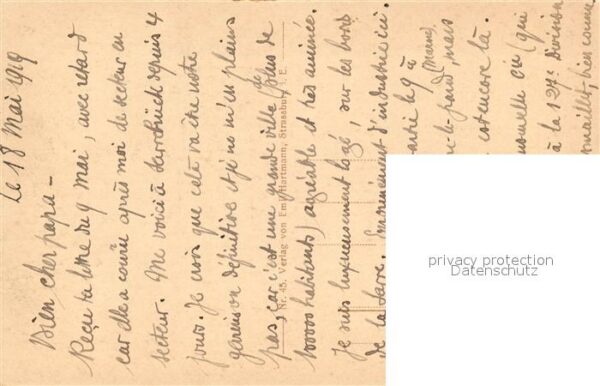 le 18 Mai 1919
Bien cher papa -
Reçu ta lettre du 9 mai, avec retard
car elle a couru après moi de secteur en
secteur. Me voici à Sarrebrück depuis 4
jours. Je crois que cela va être notre
garnison définitive et je ne m'en plains
pas, car c'est une grande ville (plus de
100000 habitants) agréable et très animée.
Je suis luxueusement logé, sur les bords
de la Sarre. Enormément d'industrie ici.
partie le 9 à
(Marne)
mais
est encore là.
(qui
à la 127e Division
bien connu
Nr. 45. Verlag von Emil Hartmann, Strassburg i. E.
privacy protection
Datenschutz